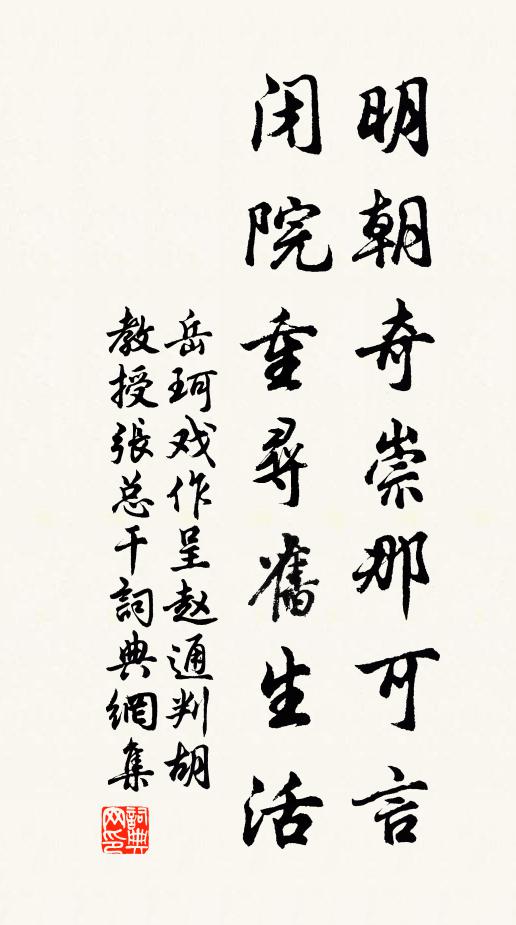 明朝奇崇那可言
闭院重尋舊生活
岳珂戏作呈赵通判胡
教授張总干詞典網集
詞典网印